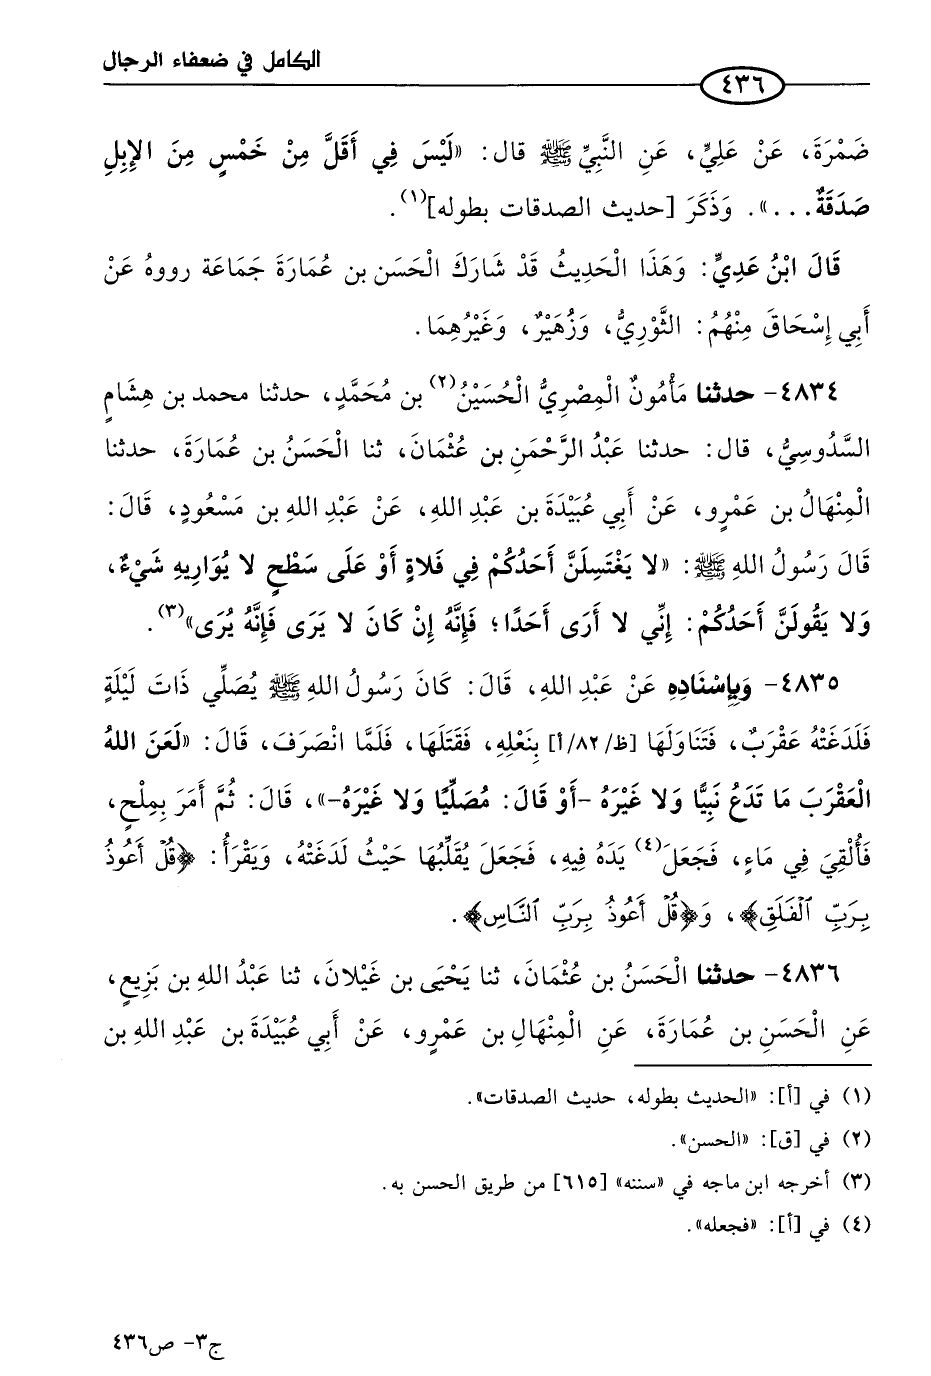 الكامل في ضعفاء الرجال
٤٣٦
ضَمْرَةَ، عَنْ عَلِيٍّ، عَنِ النَّبِيِّ ﷺ قال: «لَيْسَ فِي أَقَلَّ مِنْ خَمْسٍ مِنَ الإِبِلِ
صَدَقَةٌ...». وَذَكَرَ [حديث الصدقات بطوله](١).
قَالَ ابْنُ عَدِيٍّ: وَهَذَا الْحَدِيثُ قَدْ شَارَكَ الْحَسَن بن عُمَارَةَ جَمَاعَة رووهُ عَنْ
أَبِي إِسْحَاقَ مِنْهُمُ: الثَّوْرِيُّ، وَزُهَيْرٌ، وَغَيْرُهِمَا.
٤٨٣٤- حدثنا مَأْمُونٌ الْمِصْرِيُّ الْحُسَيْنُ(٢) بن مُحَمَّدٍ، حدثنا محمد بن هِشَامٍ
السَّدُوسِيُّ، قال: حدثنا عَبْدُ الرَّحْمَنِ بن عُثْمَانَ، ثنا الْحَسَنُ بن عُمَارَةَ، حدثنا
الْمِنْهَالُ بن عَمْرٍو، عَنْ أَبِي عُبَيْدَةَ بن عَبْدِ اللهِ، عَنْ عَبْدِ اللهِ بن مَسْعُودٍ، قَالَ:
قَالَ رَسُولُ اللهِ ﷺ: «لا يَغْتَسِلَنَّ أَحَدُكُمْ فِي فَلاةٍ أَوْ عَلَى سَطْحٍ لا يُوَارِيهِ شَيْءٌ،
وَلا يَقُولَنَّ أَحَدُكُمْ: إِنِّي لا أَرَى أَحَدًا؛ فَإِنَّهُ إِنْ كَانَ لا يَرَى فَإِنَّهُ يُرَى»(٣).
٤٨٣٥- وَبِإِسْنَادِهِ عَنْ عَبْدِ اللهِ، قَالَ: كَانَ رَسُولُ اللهِ ﷺ يُصَلِّي ذَاتَ لَيْلَةٍ
فَلَدَغَتْهُ عَقْرَبٌ، فَتَنَاوَلَهَا [ظ/٨٢/أ] بِنَعْلِهِ، فَقَتَلَهَا، فَلَمَّا انْصَرَفَ، قَالَ: «لَعَنَ اللهُ
الْعَقْرَبَ مَا تَدَعُ نَبِيًّا وَلا غَيْرَهُ -أَوْ قَالَ: مُصَلِّيًا وَلا غَيْرَهُ-»، قَالَ: ثُمَّ أَمَرَ بِمِلْحٍ،
فَأُلْقِيَ فِي مَاءٍ، فَجَعَلَ(٤) يَدَهُ فِيهِ، فَجَعَلَ يُقَلِّبُهَا حَيْثُ لَدَغَتْهُ، وَيَقْرَأُ: ﴿قُلْ أَعُوذُ
بِرَبِّ ٱلْفَلَقِ﴾، وَ﴿قُلْ أَعُوذُ بِرَبِّ ٱلنَّاسِ﴾.
٤٨٣٦- حدثنا الْحَسَنُ بن عُثْمَانَ، ثنا يَحْيَى بن غَيْلانَ، ثنا عَبْدُ اللهِ بن بَزِيعٍ،
عَنِ الْحَسَنِ بن عُمَارَةَ، عَنِ الْمِنْهَالِ بن عَمْرٍو، عَنْ أَبِي عُبَيْدَةَ بن عَبْدِ اللهِ بن
(١) في [أ]: «الحديث بطوله، حديث الصدقات».
(٢) في [ق]: «الحسن».
(٣) أخرجه ابن ماجه في «سننه» [٦١٥] من طريق الحسن به.
(٤) في [أ]: «فجعله».
ج٣- ص٤٣٦